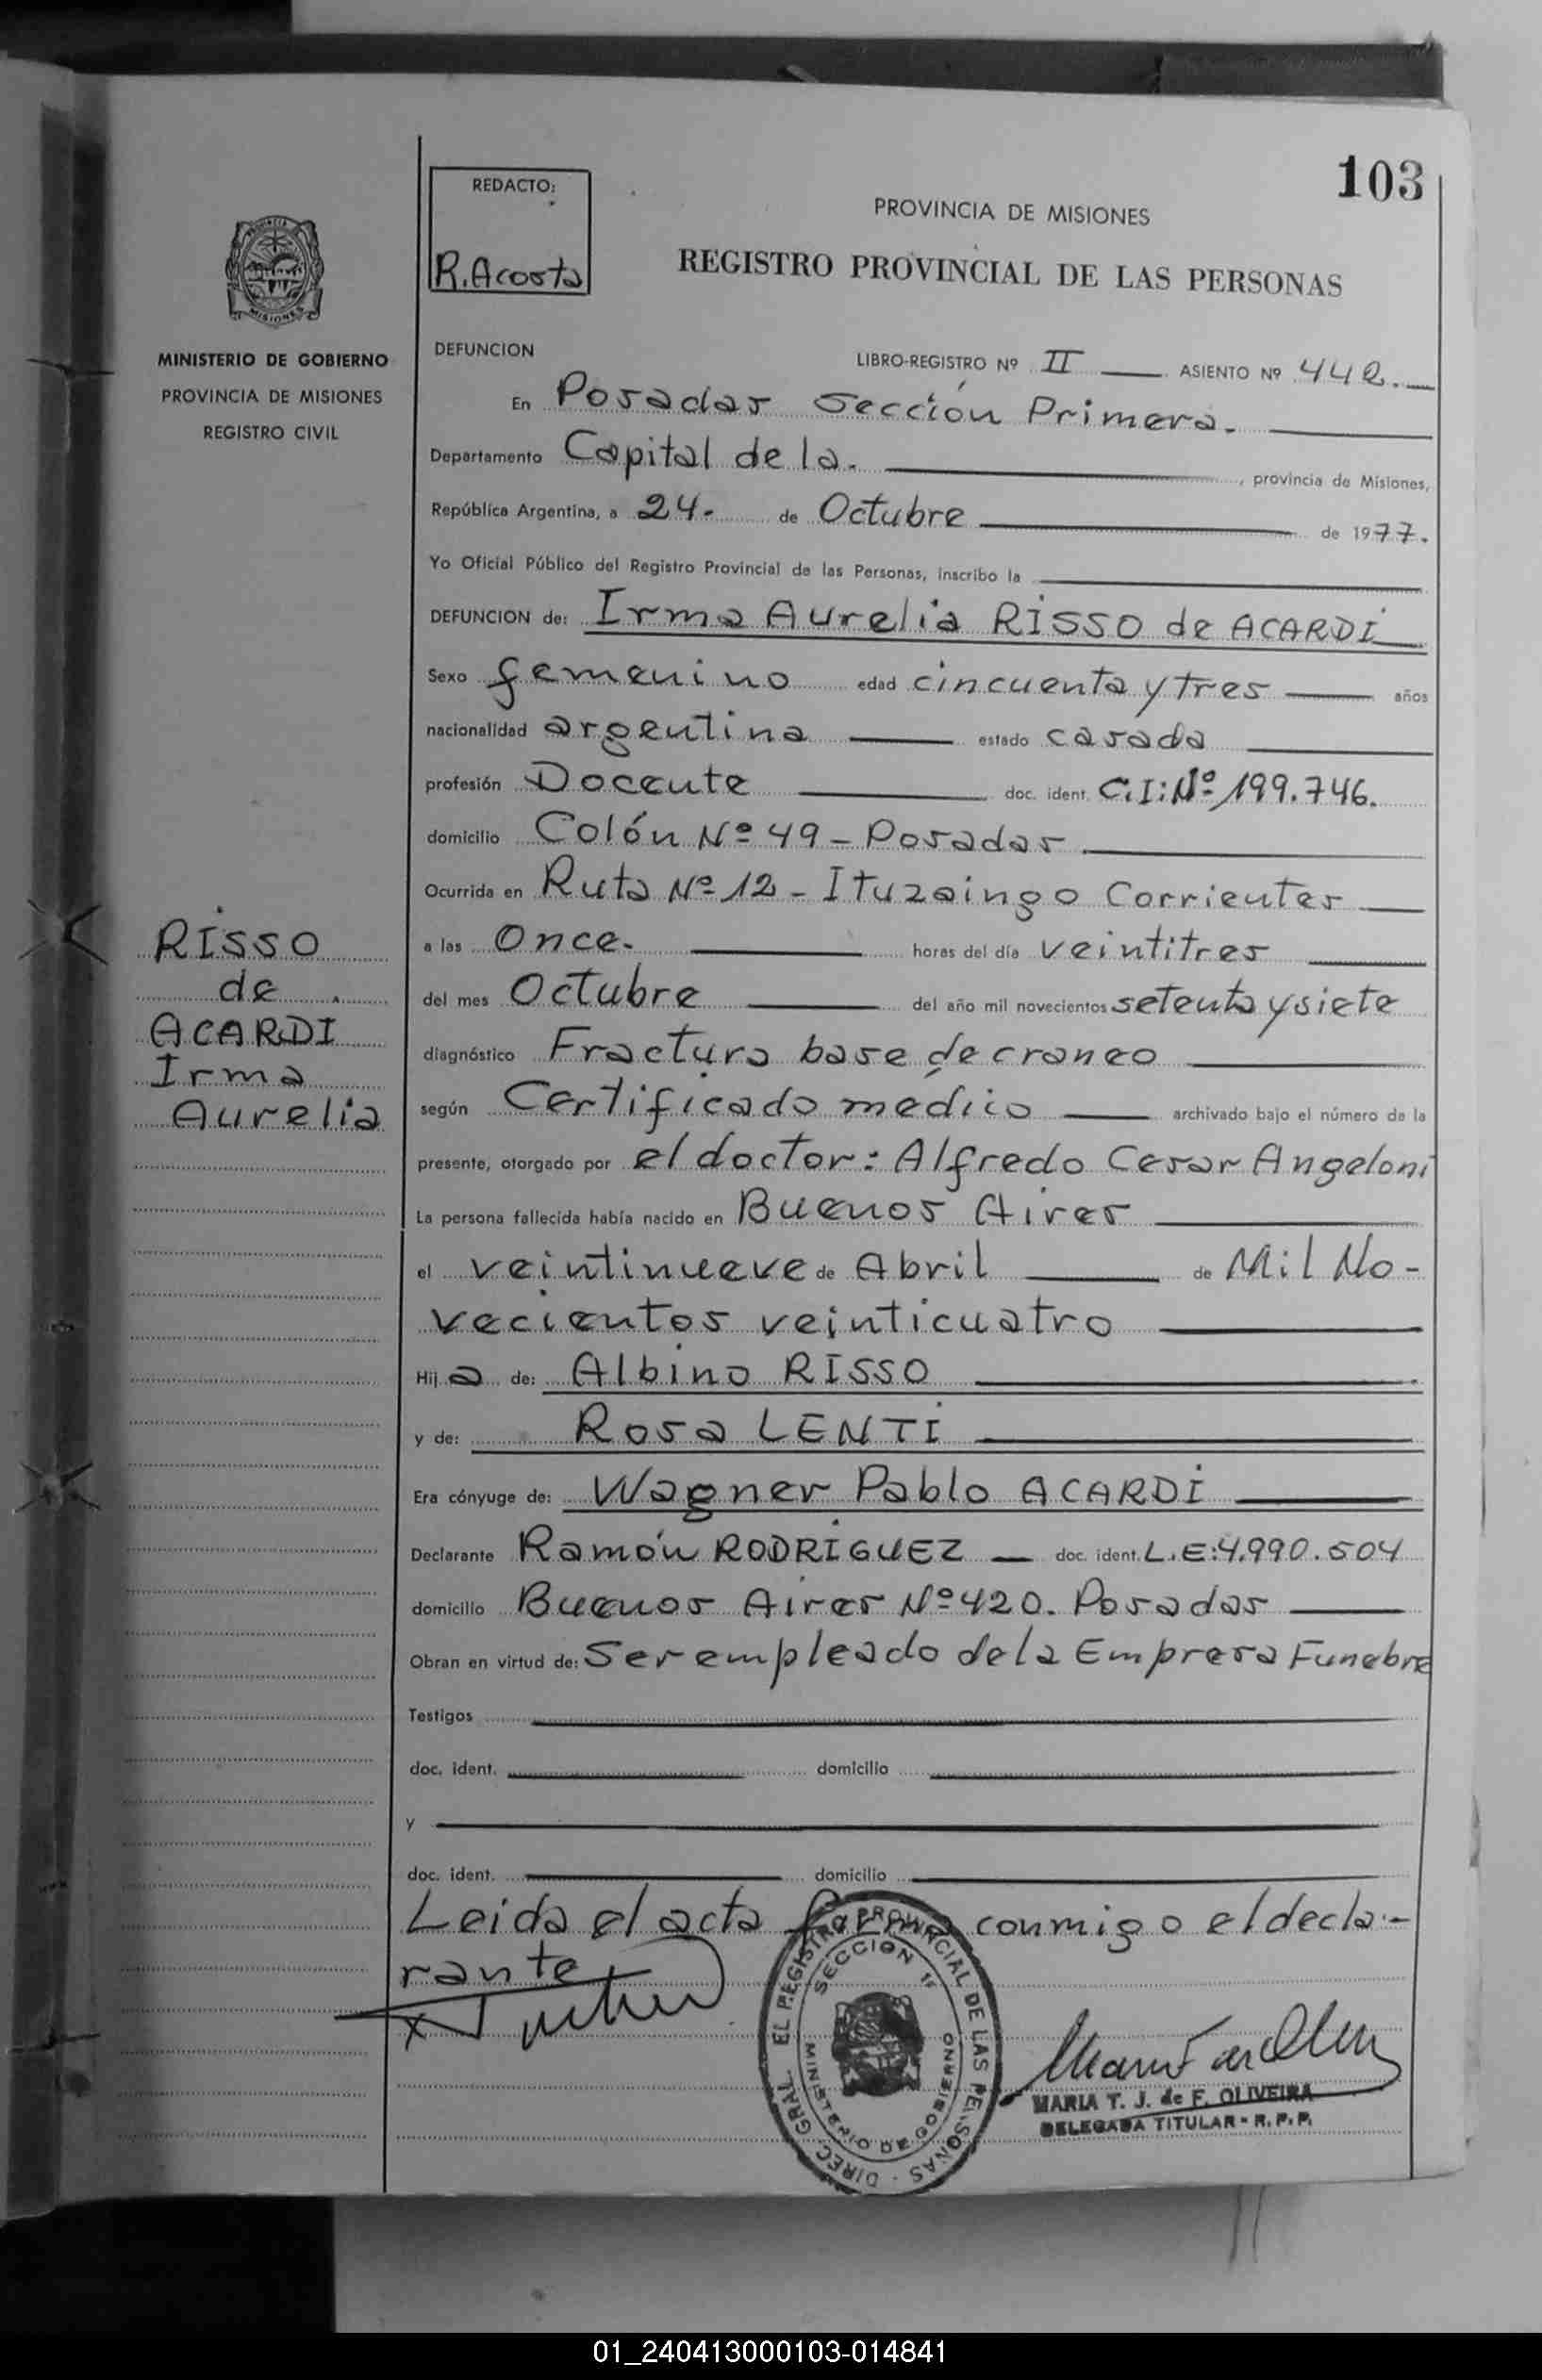 103
REDACTO:
R. Acosta
PROVINCIA DE MISIONES
REGISTRO PROVINCIAL DE LAS PERSONAS
MISIONES
MINISTERIO DE GOBIERNO
PROVINCIA DE MISIONES
REGISTRO CIVIL
DEFUNCION
LIBRO-REGISTRO Nº II ASIENTO Nº 442.
En Posadas Sección Primera.
Departamento Capital de la. , provincia de Misiones,
República Argentina, a 24. de Octubre de 1977.
Yo Oficial Público del Registro Provincial de las Personas, inscribo la
DEFUNCION de: Irma Aurelia RISSO de ACARDI
Sexo femenino edad cincuenta y tres años
nacionalidad argentina estado casada
profesión Docente doc. ident. C.I: Nº 199.746.
domicilio Colón Nº 49 - Posadas
Ocurrida en Ruta Nº 12 - Ituzaingo Corrientes
a las Once. horas del día veintitres
del mes Octubre del año mil novecientos setenta y siete
diagnóstico Fractura base de craneo
según Certificado médico archivado bajo el número de la
presente, otorgado por el doctor: Alfredo Cesar Angeloni
La persona fallecida había nacido en Buenos Aires
el veintinueve de Abril de Mil No-
vecientos veinticuatro
Hij a de: Albino RISSO
y de: Rosa LENTI
Era cónyuge de: Wagner Pablo ACARDI
Declarante Ramón RODRIGUEZ doc. ident. L.E: 4.990.504
domicilio Buenos Aires Nº 420. Posadas
Obran en virtud de: Ser empleado de la Empresa Funebre
Testigos
doc. ident. domicilio
y
doc. ident. domicilio
Leida el acta firma conmigo el decla-
rante
RISSO
de
ACARDI
Irma
Aurelia
DIREC. GRAL. EL REGISTRO PROVINCIAL DE LAS PERSONAS
SECCION 1ª
MINISTERIO DE GOBIERNO
MARIA T. J. de F. OLIVEIRA
DELEGADA TITULAR - R. P. P.
01_240413000103-014841